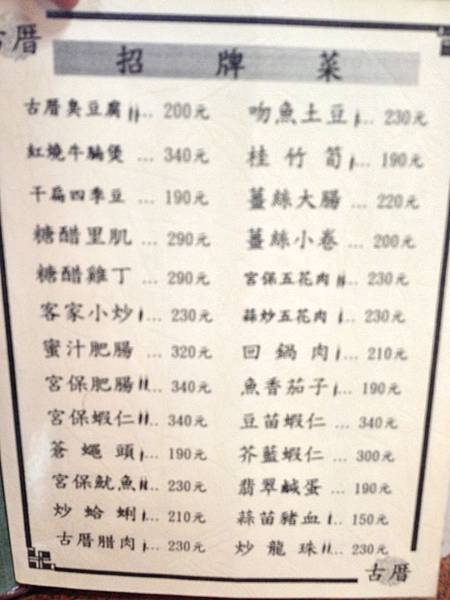 古厝
招牌菜
古厝臭豆腐... 200元
紅燒牛腩煲 ... 340元
干扁四季豆 ... 190元
糖醋里肌 ... 290元
糖醋雞丁 ... 290元
客家小炒... 230元
蜜汁肥腸 ... 320元
宮保肥腸... 340元
宮保蝦仁... 340元
蒼蠅頭... 190元
宮保魷魚... 230元
炒蛤蜊... 210元
古厝腊肉... 230元
吻魚土豆... 230元
桂竹筍... 190元
薑絲大腸 ... 220元
薑絲小卷 ... 200元
宮保五花肉... 230元
蒜炒五花肉... 230元
回鍋肉... 210元
魚香茄子... 190元
豆苗蝦仁 ... 340元
芥藍蝦仁 ... 300元
翡翠鹹蛋 ... 190元
蒜苗豬血... 150元
炒龍珠... 230元
古厝